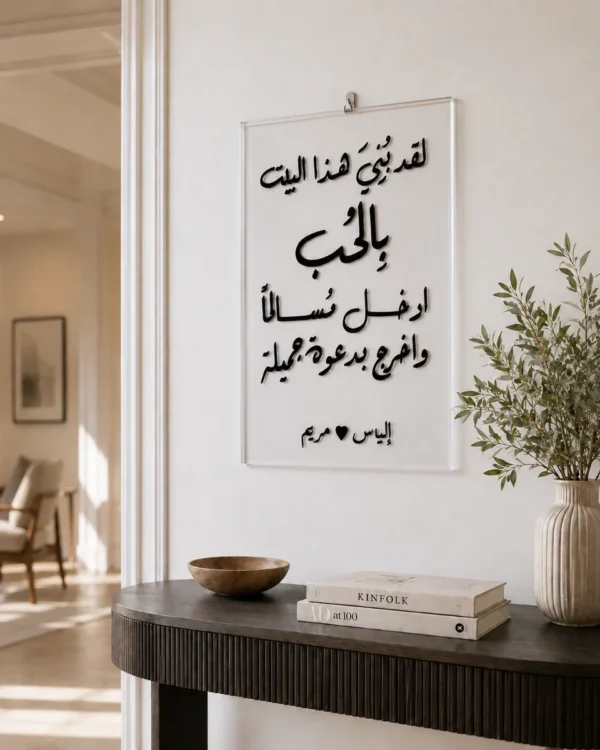 لقد بُنِيَ هذا البيت
بِالحُب
ادخل مُسالماً
واخرج بدعوة جميلة
إلياس ♥ مريم
KINFOLK
AD at 100